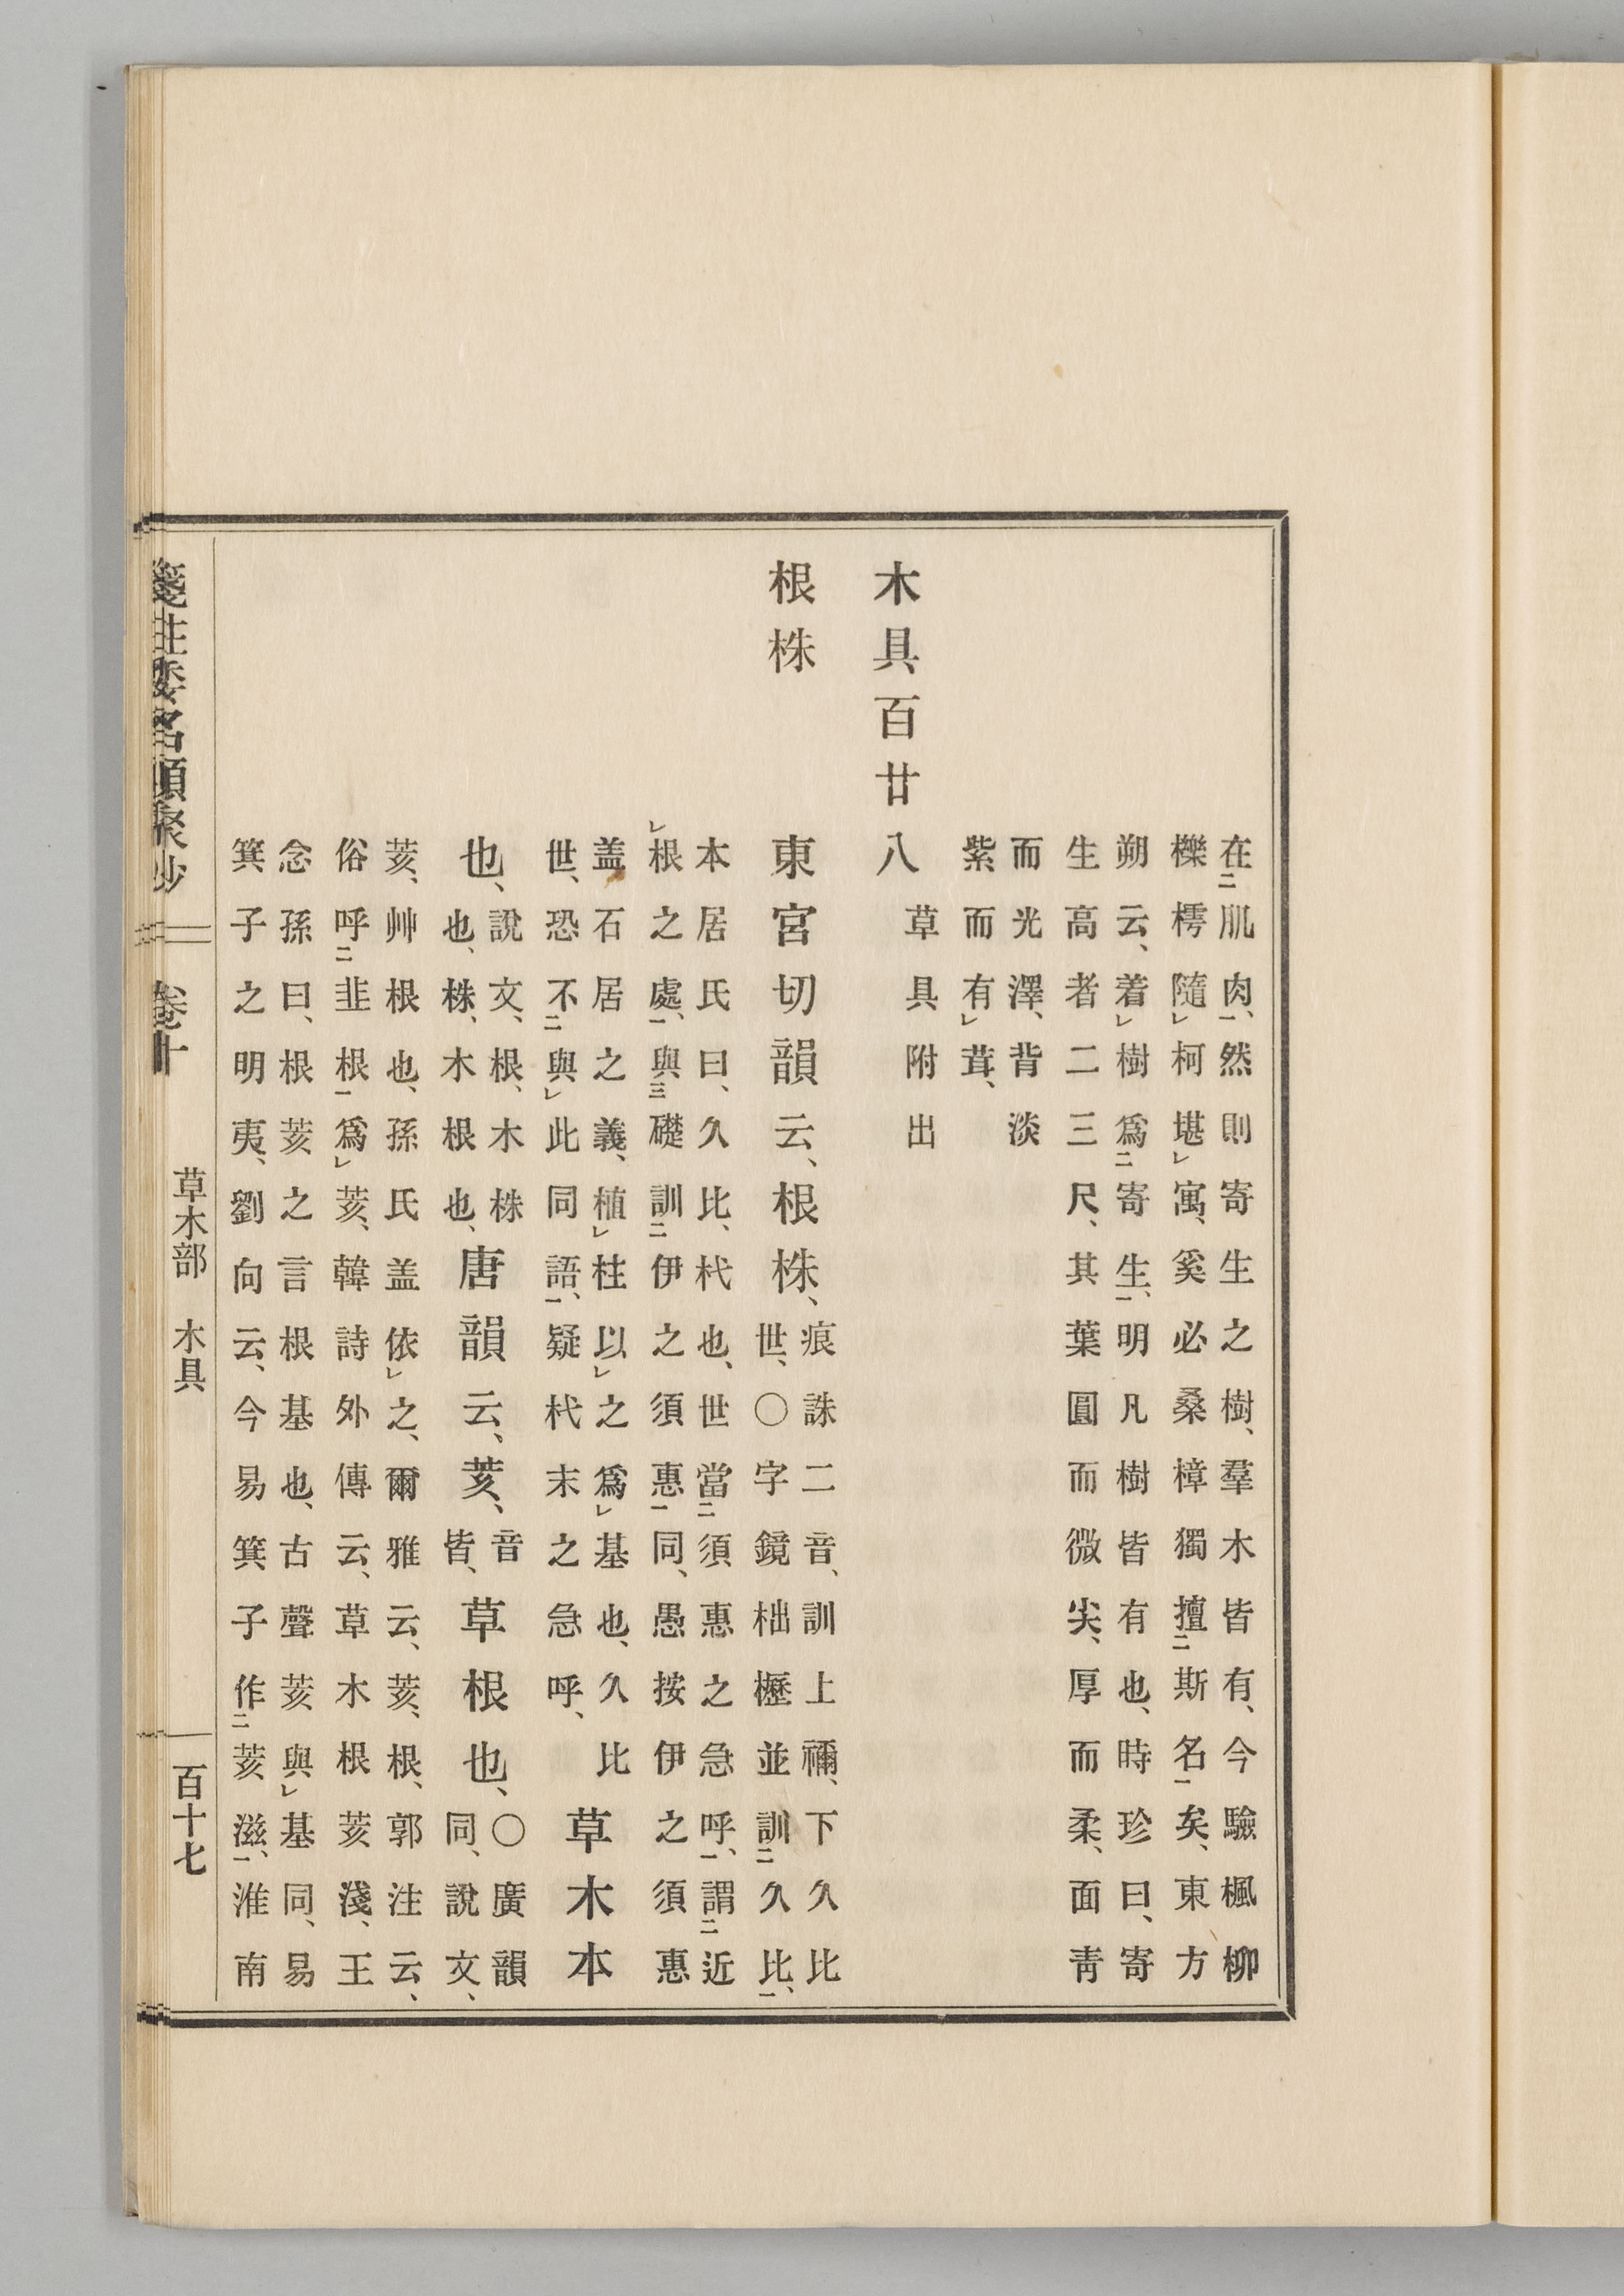 在二肌肉一、然則寄生之樹、羣木皆有、今驗楓柳
櫟樗隨レ柯堪レ寓、奚必桑樟獨擅二斯名一矣、東方
朔云、着レ樹爲二寄生一、明凡樹皆有也、時珍曰、寄
生高者二三尺、其葉圓而微尖、厚而柔、面靑
而光澤、背淡
紫而有レ茸、
木具百廿八 草具附出
根株 東宮切韻云、根株、
痕誅二音、訓上禰、下久比
世、〇字鏡柮櫪並訓二久比一、
本居氏曰、久比、杙也、世當二須惠之急呼一、謂二近
レ根之處一、與三礎訓二伊之須惠一同、愚按伊之須惠
盖石居之義、植レ柱以レ之爲レ基也、久比
世、恐不二與レ此同語一、疑杙末之急呼、
草木本
也、
說文、根、木株
也、株、木根也、
唐韻云、荄、
音
皆、
草根也、
〇廣韻
同、說文、
荄、艸根也、孫氏盖依レ之、爾雅云、荄、根、郭注云、
俗呼二韭根一爲レ荄、韓詩外傳云、草木根荄淺、王
念孫曰、根荄之言根基也、古聲荄與レ基同、易
箕子之明夷、劉向云、今易箕子作二荄滋一、淮南
箋注倭名類聚抄 卷十 草木部 木具 百十七